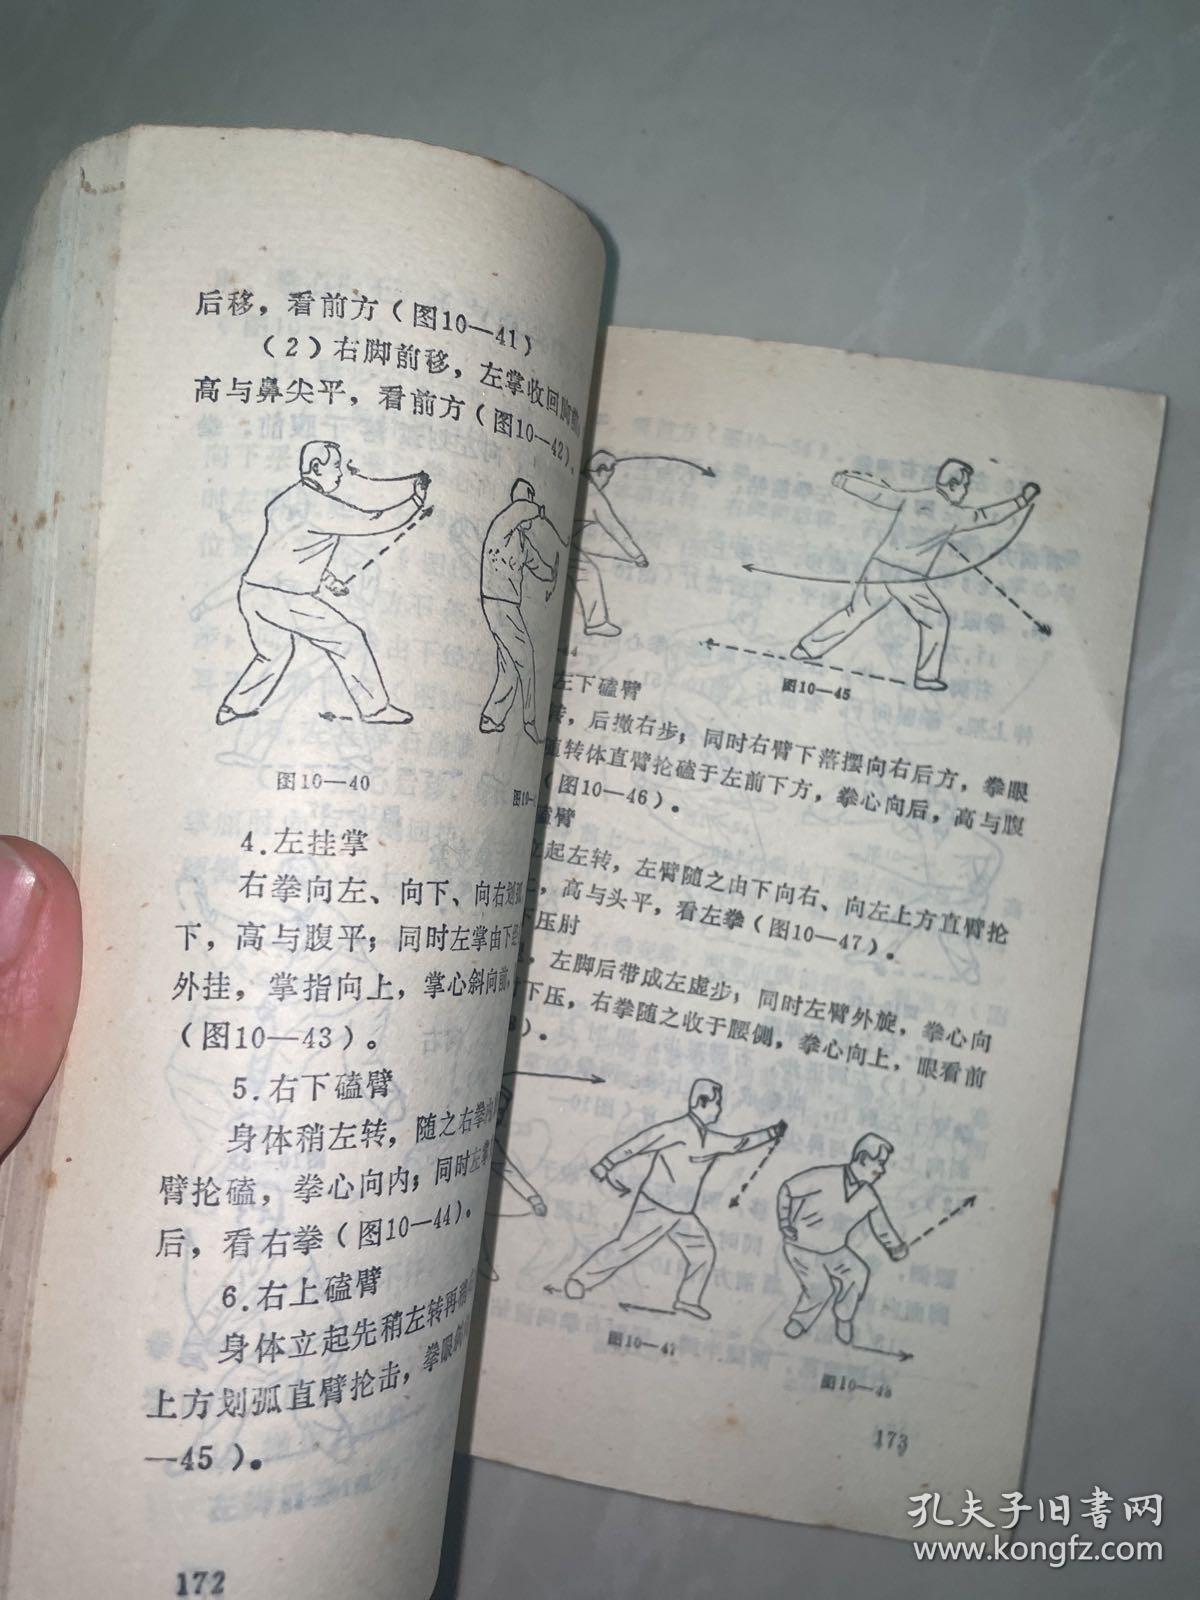 后移，看前方（图10—41）
（2）右脚前移，左掌收回胸前，
高与鼻尖平，看前方（图10—42）。
图10—40
图10—
4.左挂掌
右拳向左、向下、向右划弧
下，高与腹平；同时左掌由下经
外挂，掌指向上，掌心斜向前，
（图10—43）。
5.右下磕臂
身体稍左转，随之右拳
臂抡磕，拳心向内；同时左掌
后，看右拳（图10—44）。
6.右上磕臂
身体立起先稍左转再
上方划弧直臂抡击，拳眼
—45）。
172
图10—45
左下磕臂
转，后撤右步；同时右臂下落摆向右后方，拳眼
随转体直臂抡磕于左前下方，拳心向后，高与腹
（图10—46）。
磕臂
立起左转，左臂随之由下向右、向左上方直臂抡
，高与头平，看左拳（图10—47）。
下压肘
，左脚后带成左虚步；同时左臂外旋，拳心向
下压，右拳随之收于腰侧，拳心向上，眼看前
）。
图10—47
图10—48
173
孔夫子旧书网
www.kongfz.com